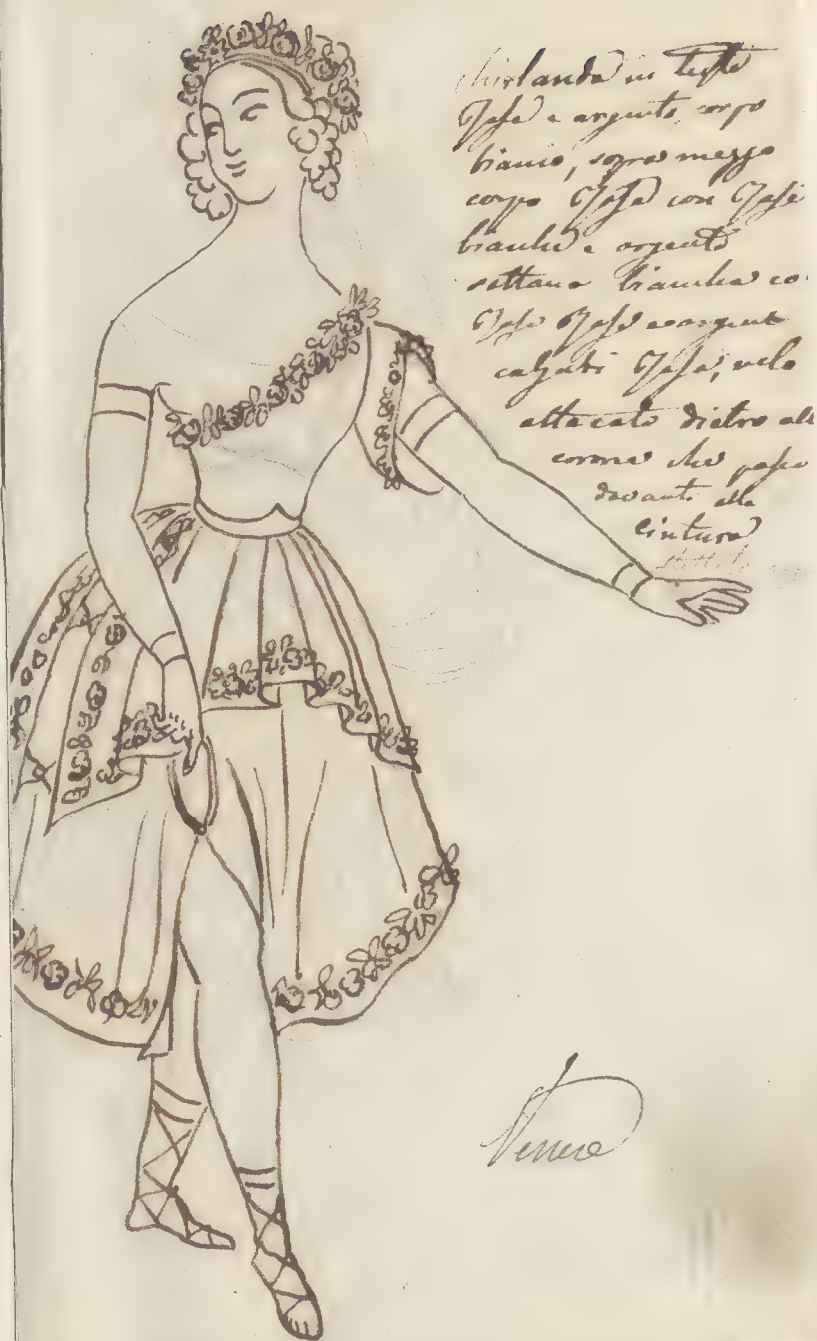 Ghirlanda in testa
Rose e argento, corpo
bianco, sopra mezzo
corpo Rosa con Rose
bianche e argento
sottana bianca co
Rose Rose e argent
calzati Rosa, velo
attacato dietro alla
corona che passa
davanti alla
cintura
Venere